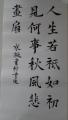 人生若祇如初
見何事秋風悲
畫扇